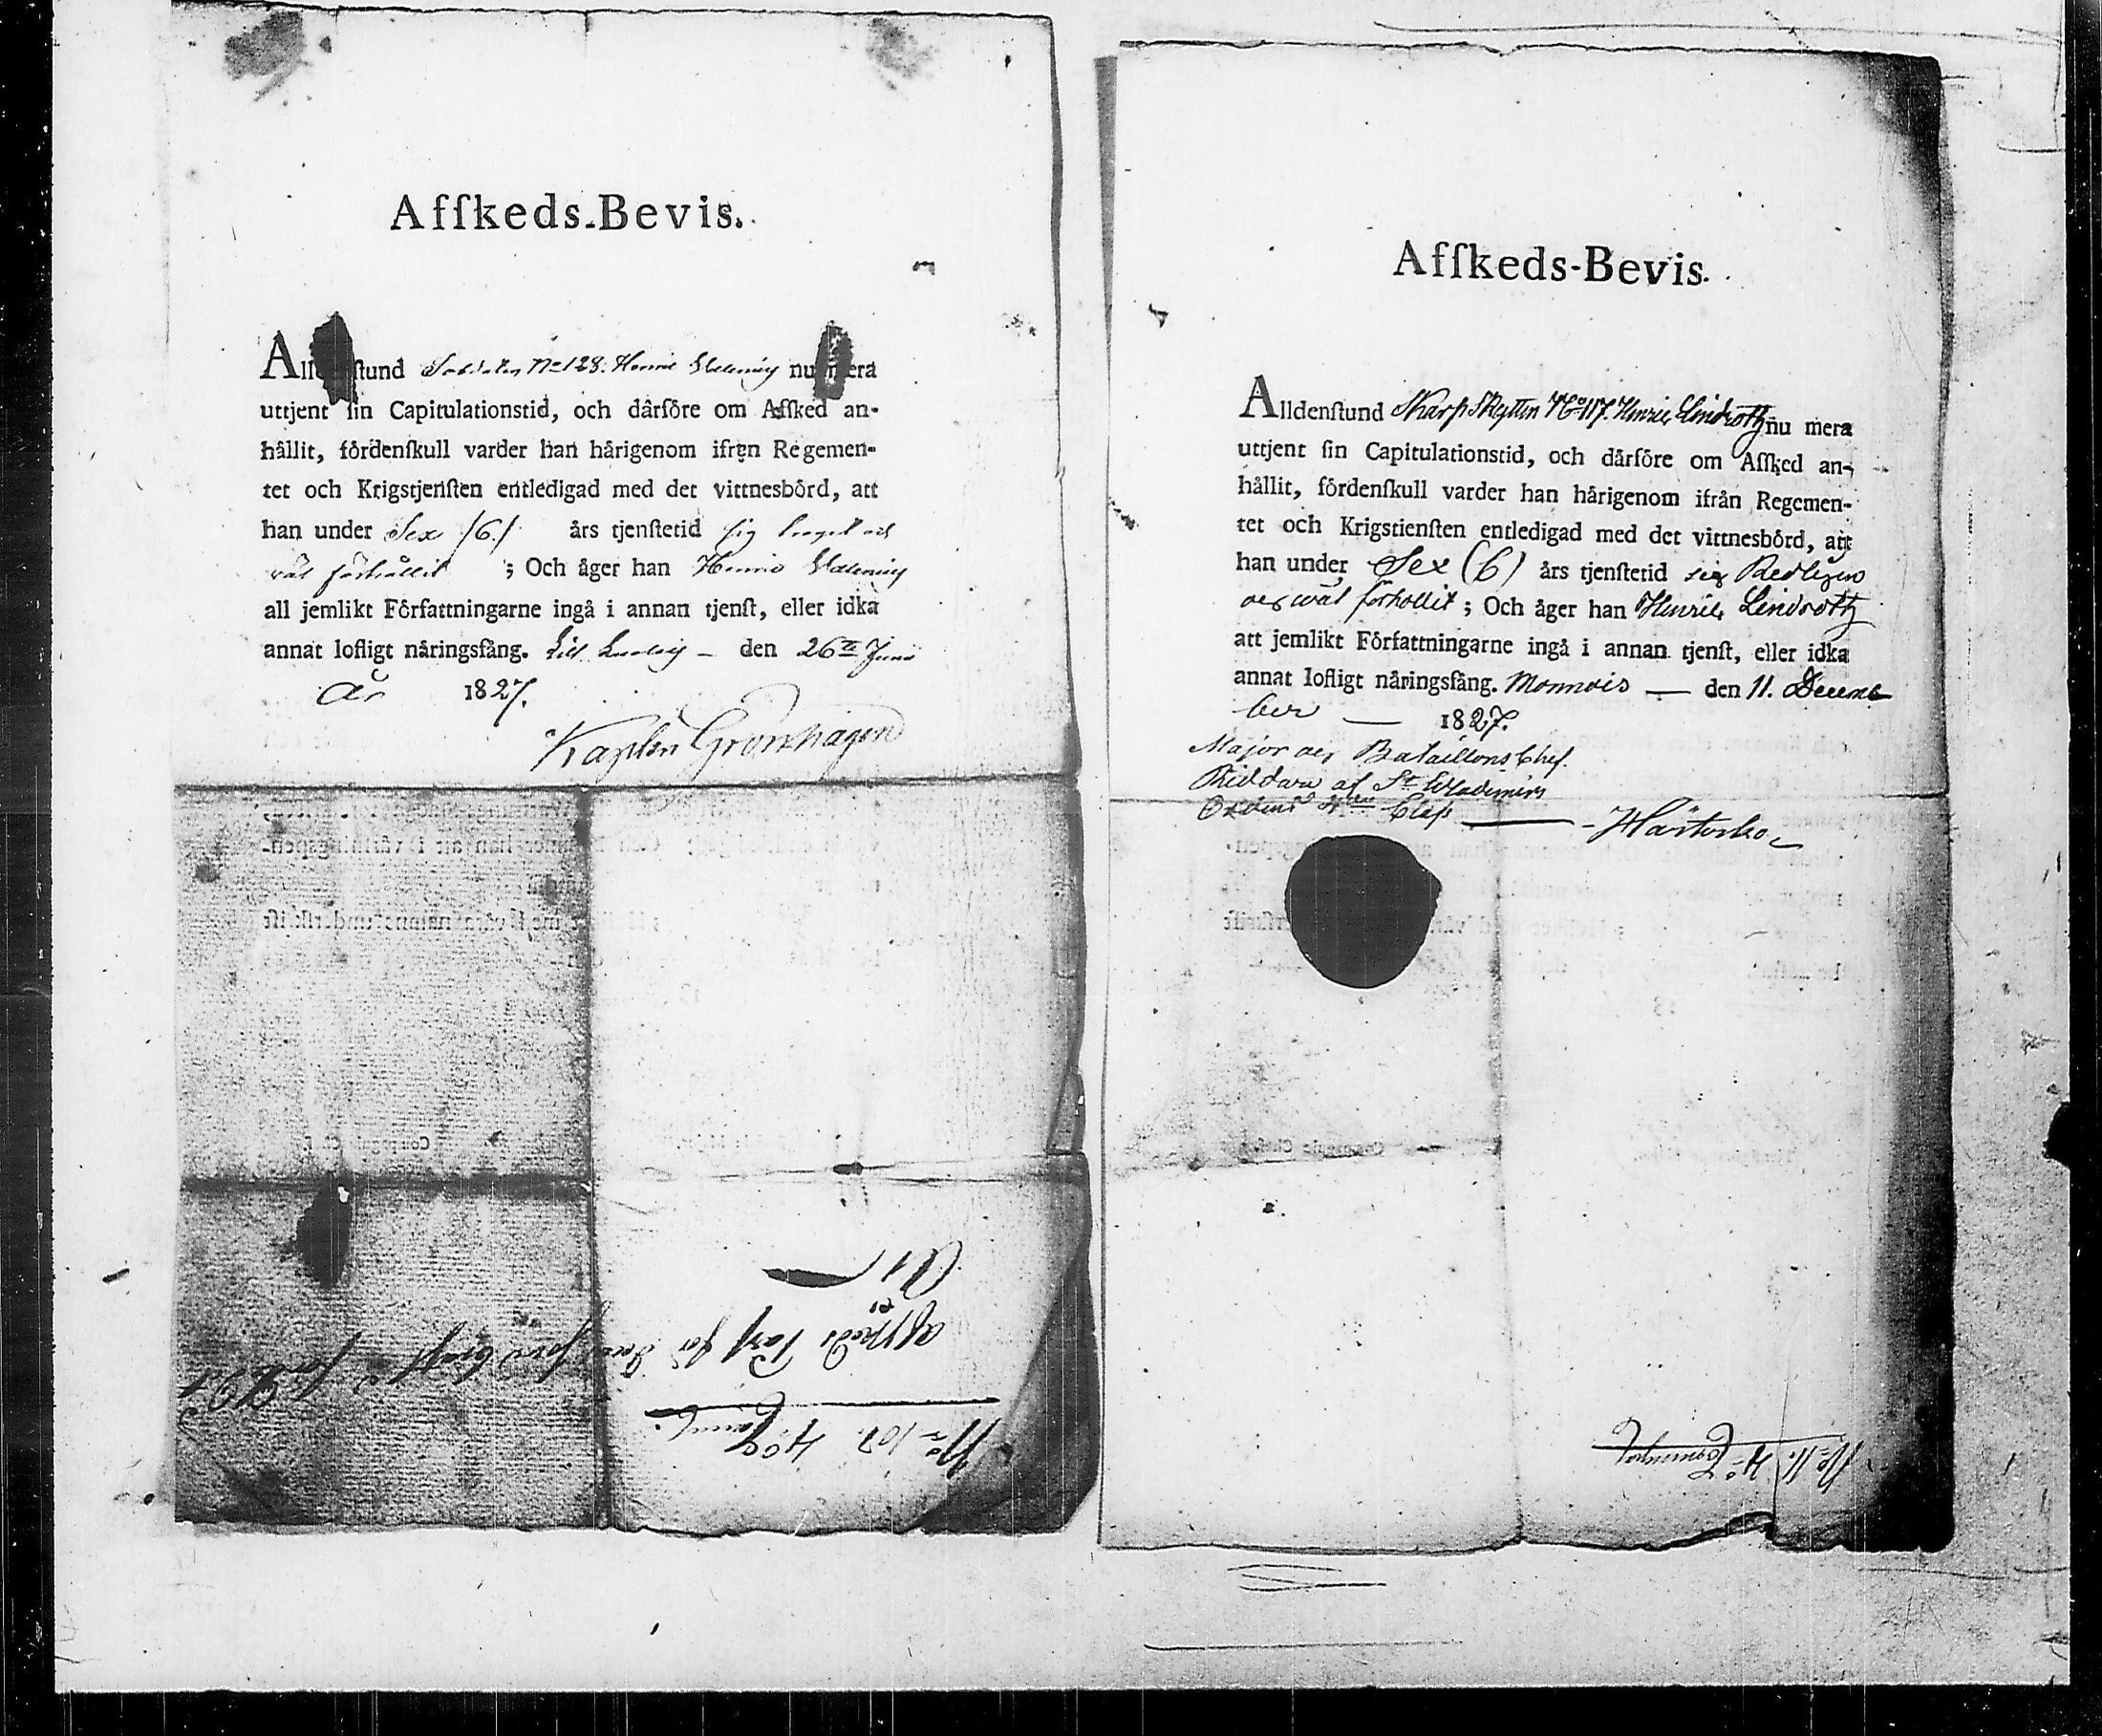 Afſkeds-Bevis.
All ſtund Soldaten No 128. Henric nu mera
uttjent ſin Capitulationstid, och dårföre om Afſked an-
hållit, fördenſkull varder han hårigenom ifrån Regemen-
tet och Krigstjenſten entledigad med det vittnesbörd, att
han under Sex /6/ års tjenſtetid ſig troget och
väl förhållit ; Och åger han Henric
att jemlikt Författningarne ingå i annan tjenſt, eller idka
annat lofligt nåringsfång. den 26te Junii
År 1827.
Kapten Grönhagen
Ai
afskeds Pass för
No 107. 4o
Afſkeds-Bevis.
Alldenſtund Skarpskytten No 117. Henric Lindroth nu mera
uttjent ſin Capitulationstid, och dårföre om Afſked an-
hållit, fördenſkull varder han hårigenom ifrån Regemen-
tet och Krigstienſten entledigad med det vittnesbörd, att
han under Sex (6) års tjenſtetid sig Redligen
och wäl förhollit ; Och åger han Henric Lindroth
att jemlikt Författningarne ingå i annan tjenſt, eller idka
annat lofligt nåringsfång. Monnois — den 11. Decem-
ber — 1827.
Major och Bataillons Chef.
Riddare af St Wladimirs
Ordens 4de Class
No 11. 4o
Compagni Chef.